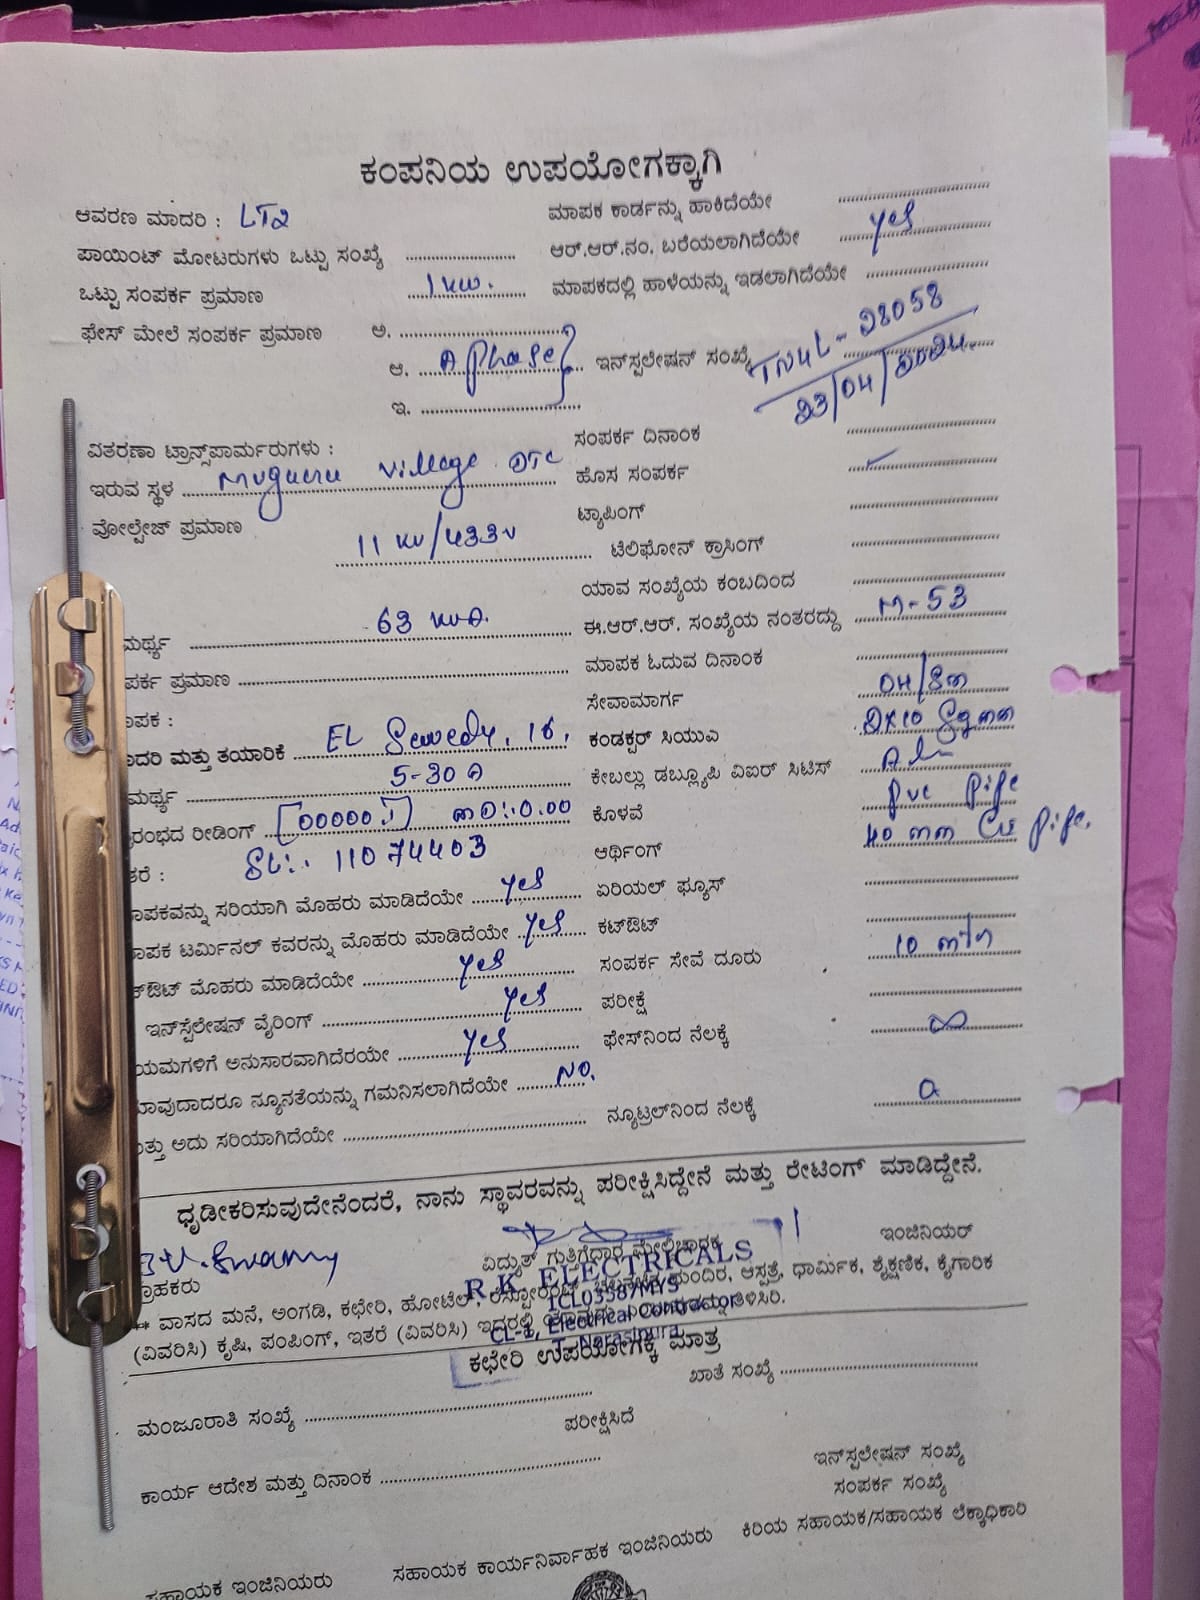 ಕಂಪನಿಯ ಉಪಯೋಗಕ್ಕಾಗಿ
ಆವರಣ ಮಾದರಿ : LT2
ಮಾಪಕ ಕಾರ್ಡನ್ನು ಹಾಕಿದೆಯೇ
ಪಾಯಿಂಟ್ ಮೋಟರುಗಳು ಒಟ್ಟು ಸಂಖ್ಯೆ
ಆರ್.ಆರ್.ನಂ. ಬರೆಯಲಾಗಿದೆಯೇ yes
ಒಟ್ಟು ಸಂಪರ್ಕ ಪ್ರಮಾಣ 1 kw.
ಮಾಪಕದಲ್ಲಿ ಹಾಳೆಯನ್ನು ಇಡಲಾಗಿದೆಯೇ
ಫೇಸ್ ಮೇಲೆ ಸಂಪರ್ಕ ಪ್ರಮಾಣ ಅ.
ಆ. A phase
ಇನ್‌ಸ್ಪಲೇಷನ್ ಸಂಖ್ಯೆ TN4L - 28058
23/04/2024.
ಇ.
ವಿತರಣಾ ಟ್ರಾನ್ಸ್‌ಪಾರ್ಮರುಗಳು :
ಸಂಪರ್ಕ ದಿನಾಂಕ
ಇರುವ ಸ್ಥಳ Village DTC
ಹೊಸ ಸಂಪರ್ಕ ✓
ವೋಲ್ಟೇಜ್ ಪ್ರಮಾಣ 11 KV/433V
ಟ್ಯಾಪಿಂಗ್
ಟೆಲಿಫೋನ್ ಕ್ರಾಸಿಂಗ್
ಯಾವ ಸಂಖ್ಯೆಯ ಕಂಬದಿಂದ
ಮರ್ಥ್ಯ 63 KVA.
ಈ.ಆರ್.ಆರ್. ಸಂಖ್ಯೆಯ ನಂತರದ್ದು M-53
ಪರ್ಕ ಪ್ರಮಾಣ
ಮಾಪಕ ಓದುವ ದಿನಾಂಕ
ಾಪಕ :
ಸೇವಾಮಾರ್ಗ
ಾದರಿ ಮತ್ತು ತಯಾರಿಕೆ EL Sewedy, 1Φ,
ಕಂಡಕ್ಟರ್ ಸಿಯುಎ
ಮರ್ಥ್ಯ 5-30 A
ಕೇಬಲ್ಲು ಡಬ್ಲ್ಯೂಪಿ ವಿಐರ್ ಸಿಟಿಸ್
ರಂಭದ ರೀಡಿಂಗ್ [00000.1] MD:0.00
ಕೊಳವೆ PVC Pipe
ತರೆ : SL:. 11074403
ಆರ್ಥಿಂಗ್ 40 mm GI Pipe.
ಾಪಕವನ್ನು ಸರಿಯಾಗಿ ಮೊಹರು ಮಾಡಿದೆಯೇ yes
ಏರಿಯಲ್ ಫ್ಯೂಸ್
ಾಪಕ ಟರ್ಮಿನಲ್ ಕವರನ್ನು ಮೊಹರು ಮಾಡಿದೆಯೇ yes
ಕಟ್‌ಔಟ್
ಕ್‌ಔಟ್ ಮೊಹರು ಮಾಡಿದೆಯೇ yes
ಸಂಪರ್ಕ ಸೇವೆ ದೂರು 10 mtr
ಇನ್‌ಸ್ಪಲೇಷನ್ ವೈರಿಂಗ್ yes
ಪರೀಕ್ಷೆ
ಯಮಗಳಿಗೆ ಅನುಸಾರವಾಗಿದೆರಯೇ yes
ಫೇಸ್‌ನಿಂದ ನೆಲಕ್ಕೆ ∞
ಾವುದಾದರೂ ನ್ಯೂನತೆಯನ್ನು ಗಮನಿಸಲಾಗಿದೆಯೇ No.
ತ್ತು ಅದು ಸರಿಯಾಗಿದೆಯೇ
ನ್ಯೂಟ್ರಲ್‌ನಿಂದ ನೆಲಕ್ಕೆ 0
ಧೃಡೀಕರಿಸುವುದೇನೆಂದರೆ, ನಾನು ಸ್ಥಾವರವನ್ನು ಪರೀಕ್ಷಿಸಿದ್ದೇನೆ ಮತ್ತು ರೇಟಿಂಗ್ ಮಾಡಿದ್ದೇನೆ.
Swamy
ಗ್ರಾಹಕರು
ವಿದ್ಯುತ್ ಗುತ್ತಿಗೆದಾರ ಮೇಲ್ವಿಚಾರಕ
ಇಂಜಿನಿಯರ್
R K ELECTRICALS
1CL03587MYS
CL-1, Electrical Contractor
T. Narasipura
** ವಾಸದ ಮನೆ, ಅಂಗಡಿ, ಕಛೇರಿ, ಹೋಟೆಲ್, ರೆಸ್ಟೋರೆಂಟ್, ಮಂದಿರ, ಆಸ್ಪತ್ರೆ, ಧಾರ್ಮಿಕ, ಶೈಕ್ಷಣಿಕ, ಕೈಗಾರಿಕ
(ವಿವರಿಸಿ) ಕೃಷಿ, ಪಂಪಿಂಗ್, ಇತರೆ (ವಿವರಿಸಿ) ಇದ್ದರಲ್ಲಿ ತಿಳಿಸಿರಿ.
ಕಛೇರಿ ಉಪಯೋಗಕ್ಕೆ ಮಾತ್ರ
ಮಂಜೂರಾತಿ ಸಂಖ್ಯೆ
ಖಾತೆ ಸಂಖ್ಯೆ
ಪರೀಕ್ಷಿಸಿದೆ
ಕಾರ್ಯ ಆದೇಶ ಮತ್ತು ದಿನಾಂಕ
ಇನ್‌ಸ್ಪಲೇಷನ್ ಸಂಖ್ಯೆ
ಸಂಪರ್ಕ ಸಂಖ್ಯೆ
ಸಹಾಯಕ ಇಂಜಿನಿಯರು
ಸಹಾಯಕ ಕಾರ್ಯನಿರ್ವಾಹಕ ಇಂಜಿನಿಯರು
ಕಿರಿಯ ಸಹಾಯಕ/ಸಹಾಯಕ ಲೆಕ್ಕಾಧಿಕಾರಿ